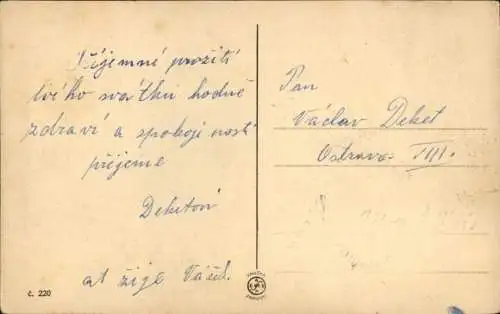 Příjemné prožití
tvího svátku hodně
zdraví a spokojenosti
přejeme
Deketovi
at žije Vašek.
č. 220
Pan
Václav Deket
Ostrava VIII.